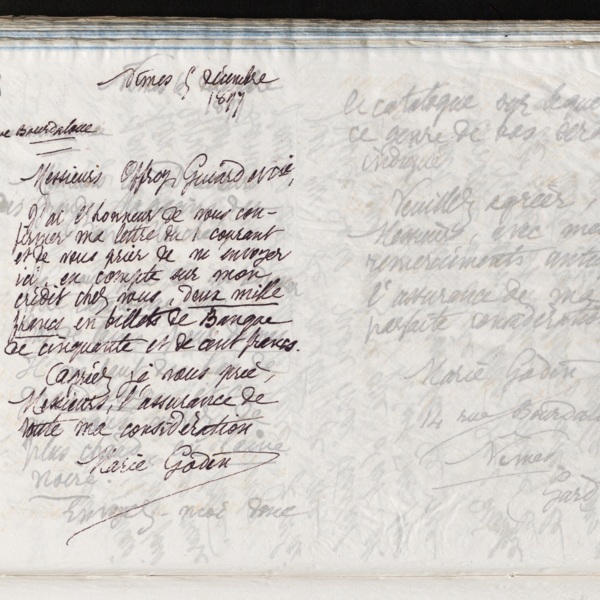 Nîmes 5 décembre
1897
rue Bourdaloue
Messieurs Offroy Guiard et Cie,
J'ai l'honneur de vous con-
firmer ma lettre du 1 courant
et de vous prier de m'envoyer
ici, en compte sur mon
crédit chez vous, deux mille
francs en billets de Banque
de cinquante et de cent francs.
Agréez je vous prie,
Messieurs, l'assurance de
toute ma considération
Marie Godin
Envoyez-moi donc
le catalogue sur lequel
ce genre de bas sera
indiqué
Veuillez agréer,
Monsieur avec mes
remerciements
l'assurance de ma
parfaite considération
Marie Godin
14 rue Bourdaloue
Nîmes
Gard